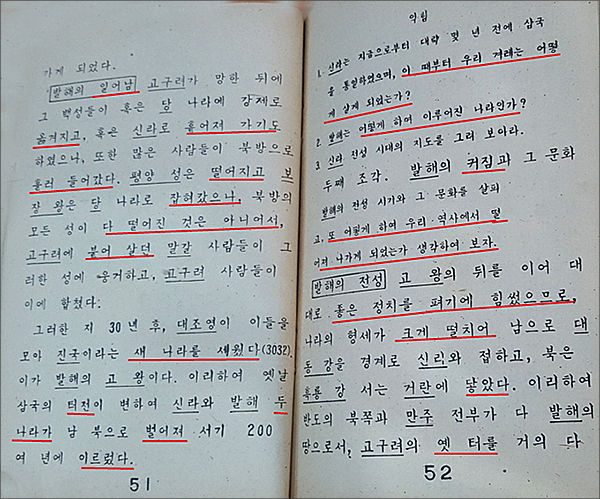 가게 되었다.
발해의 일어남 고구려가 망한 뒤에
그 백성들이 혹은 당 나라에 강제로
옮겨지고, 혹은 신라로 흩어져 가기도
하였으나, 또한 많은 사람들이 북방으로
흘러 들어갔다. 평양 성은 떨어지고 보
장 왕은 당 나라로 잡혀갔으나, 북방의
모든 성이 다 떨어진 것은 아니어서,
고구려에 붙어 살던 말갈 사람들이 그
러한 성에 웅거하고, 고구려 사람들이
이에 합쳤다.
그러한 지 30년 후, 대조영이 이들을
모아 진국이라는 새 나라를 세웠다(3032).
이가 발해의 고 왕이다. 이리하여 옛날
삼국의 터전이 변하여 신라와 발해 두
나라가 남 북으로 벌어져 서기 200
여 년에 이르렀다.
51
익힘
1. 신라는 지금으로부터 대략 몇 년 전에 삼국
을 통일하였으며, 이 때부터 우리 겨레는 어떻
게 살게 되었는가?
2. 발해는 어떻게 하여 이루어진 나라인가?
3. 신라 전성 시대의 지도를 그려 보아라.
두째 조각. 발해의 커짐과 그 문화
발해의 전성 시기와 그 문화를 살피
고, 또 어떻게 하여 우리 역사에서 떨
어져 나가게 되었는가 생각하여 보자.
발해의 전성 고 왕의 뒤를 이어 대
대로 좋은 정치를 펴기에 힘썼으므로,
나라의 형세가 크게 떨치어 남으로 대
동 강을 경계로 신라와 접하고, 북은
흑룡 강 서는 거란에 닿았다. 이리하여
반도의 북쪽과 만주 전부가 다 발해의
땅으로서, 고구려의 옛 터를 거의 다
52